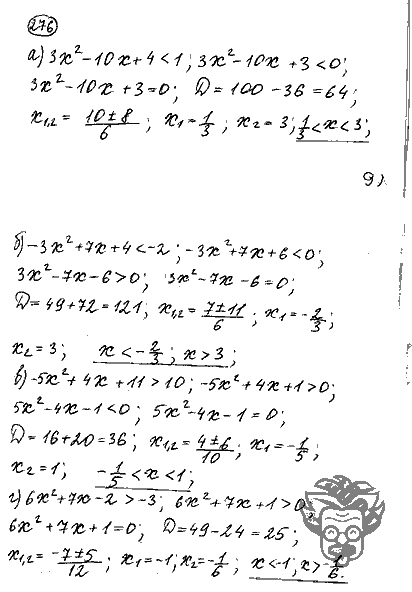 276
а) 3x² - 10x + 4 < 1; 3x² - 10x + 3 < 0;
3x² - 10x + 3 = 0; D = 100 - 36 = 64;
x₁,₂ = (10 ± 8)/6; x₁ = 1/3; x₂ = 3; 1/3 < x < 3;
9).
б) -3x² + 7x + 4 < -2; -3x² + 7x + 6 < 0;
3x² - 7x - 6 > 0; 3x² - 7x - 6 = 0;
D = 49 + 72 = 121; x₁,₂ = (7 ± 11)/6; x₁ = -2/3;
x₂ = 3; x < -2/3; x > 3;
в) -5x² + 4x + 11 > 10; -5x² + 4x + 1 > 0;
5x² - 4x - 1 < 0; 5x² - 4x - 1 = 0;
D = 16 + 20 = 36; x₁,₂ = (4 ± 6)/10; x₁ = -1/5;
x₂ = 1; -1/5 < x < 1;
г) 6x² + 7x - 2 > -3; 6x² + 7x + 1 > 0;
6x² + 7x + 1 = 0; D = 49 - 24 = 25;
x₁,₂ = (-7 ± 5)/12; x₁ = -1; x₂ = -1/6; x < -1; x > -1/6.